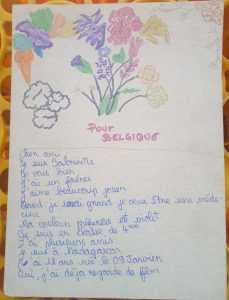 Pour
BELGIQUE
Cher ami
Je suis Gabrielle
Je vais bien
J'ai un frères
J'aime beaucoup jouer
Quand je serai grand je veux être une méde-
cine
Ma couleur préférées est violet
Je suis en classe de 4em
J'ai plusieurs amis
Je suis à Madagascar
J'ai 12 ans née le 09 Janvier
Oui, j'ai déjà regardé de film